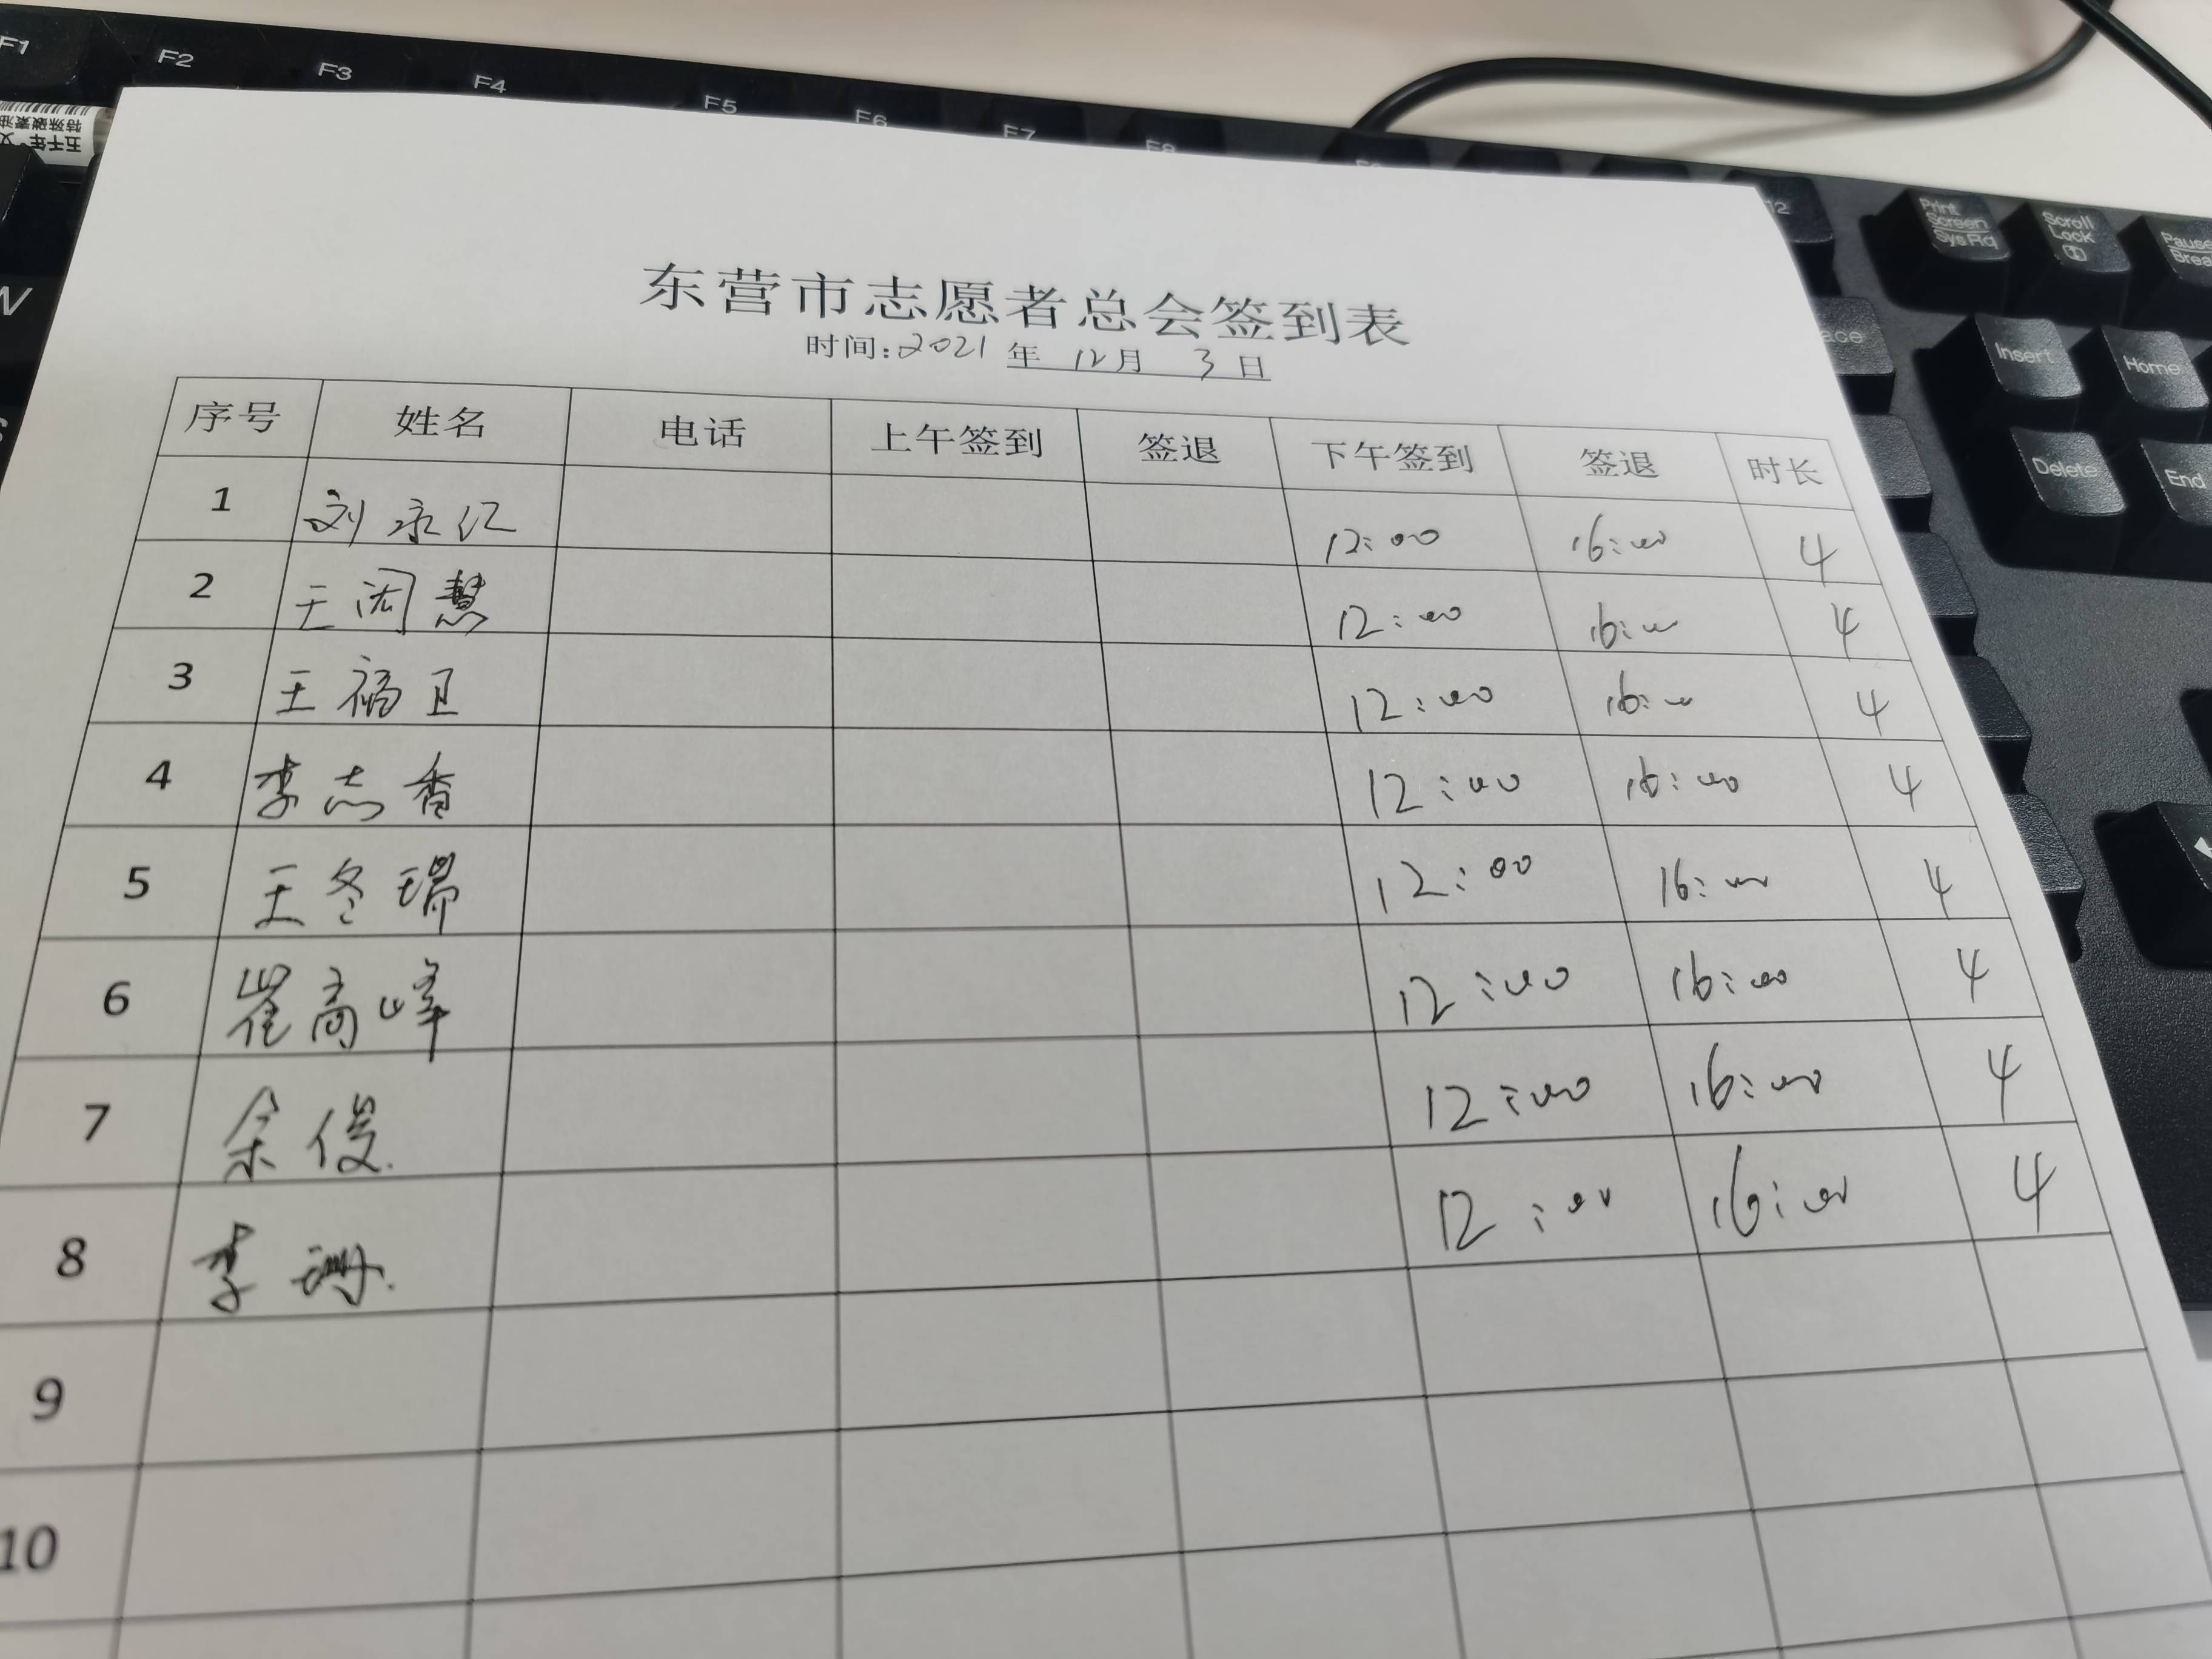 F1 F2 F3 F4 F5 F6 F7 F8
12
Print Screen SysRq
Scroll Lock
Pause Brea
五千年
特殊碳素
N
ace
Insert
Home
Delete
End
东营市志愿者总会签到表
时间:2021年 12月 3日
序号 姓名 电话 上午签到 签退 下午签到 签退 时长
1 刘永仁 12:00 16:00 4
2 王闳慧 12:00 16:00 4
3 王福卫 12:00 16:00 4
4 李志香 12:00 16:00 4
5 王冬瑞 12:00 16:00 4
6 崔高峰 12:00 16:00 4
7 余俊. 12:00 16:00 4
8 李珊. 12:00 16:00 4
9
10